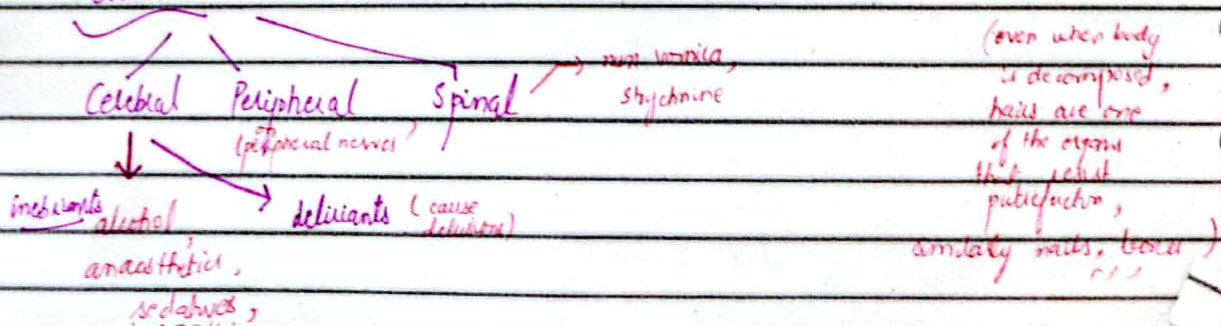 Cerebral Peripheral Spinal → nux vomica,
strychnine
(peripheral nerves)
inebriants
alcohol,
anaesthetics,
sedatives,
deliriants (cause
delusions)
(even when body
is decomposed,
hairs are one
of the organs
that resist
putrefaction,
similarly nails, bones)